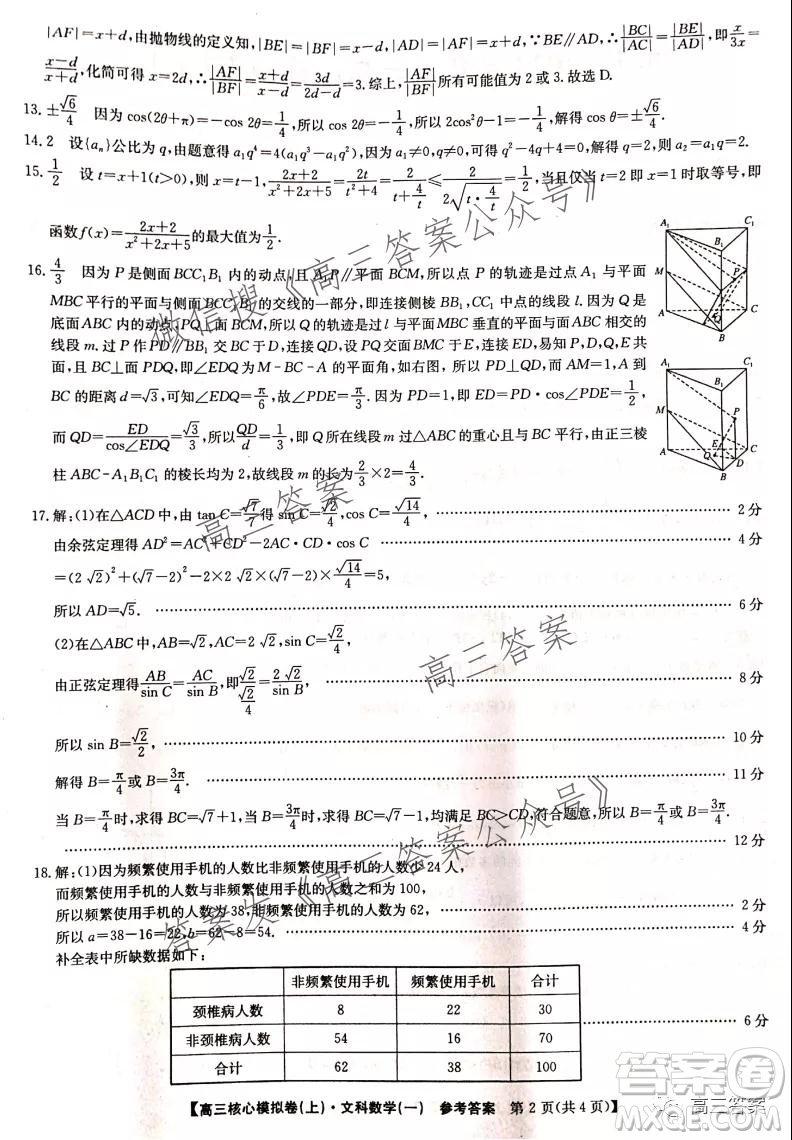 |AF|=x+d,由抛物线的定义知,|BE|=|BF|=x-d,|AD|=|AF|=x+d,∵BE∥AD,∴|BC|/|AC|=|BE|/|AD|,即x/3x=
(x-d)/(x+d),化简可得x=2d,∴|AF|/|BF|=(x+d)/(x-d)=3d/(2d-d)=3.综上,|AF|/|BF|所有可能值为2或3.故选D.
13.±√6/4 因为cos(2θ+π)=-cos 2θ=1/4,所以cos 2θ=-1/4,所以2cos²θ-1=-1/4,解得cos θ=±√6/4.
14.2 设{aₙ}公比为q,由题意得a₁q⁴=4(a₁q³-a₁q²),因为a₁≠0,q≠0,可得q²-4q+4=0,解得q=2,则a₂=a₁q=2.
15.1/2 设t=x+1(t>0),则x=t-1,(2x+2)/(x²+2x+5)=2t/(t²+4)=2/(t+4/t)≤2/(2√(t·4/t))=1/2,当且仅当t=2即x=1时取等号,即
函数f(x)=(2x+2)/(x²+2x+5)的最大值为1/2.
16.4/3 因为P是侧面BCC₁B₁内的动点,且A₁P∥平面BCM,所以点P的轨迹是过点A₁与平面
MBC平行的平面与侧面BCC₁B₁的交线的一部分,即连接侧棱BB₁,CC₁中点的线段l.因为Q是
底面ABC内的动点,PQ⊥面BCM,所以Q的轨迹是过l与平面MBC垂直的平面与面ABC相交的
线段m.过P作PD∥BB₁交BC于D,连接QD,设PQ交面BMC于E,连接ED,易知P,D,Q,E共
面,且BC⊥面PDQ,即∠EDQ为M-BC-A的平面角,如右图,所以PD⊥QD,而AM=1,A到
BC的距离d=√3,可知∠EDQ=π/6,故∠PDE=π/3.因为PD=1,即ED=PD·cos∠PDE=1/2,
而QD=ED/cos∠EDQ=√3/3,所以QD/d=1/3,即Q所在线段m过△ABC的重心且与BC平行,由正三棱
柱ABC-A₁B₁C₁的棱长均为2,故线段m的长为2/3×2=4/3.
A₁ C₁ B₁ M P A C Q B
A₁ C₁ B₁ M P E A C Q D B
17.解:(1)在△ACD中,由tan C=√7/7得sin C=√2/4,cos C=√14/4, 2分
由余弦定理得AD²=AC²+CD²-2AC·CD·cos C 4分
=(2√2)²+(√7-2)²-2×2√2×(√7-2)×√14/4=5,
所以AD=√5. 6分
(2)在△ABC中,AB=√2,AC=2√2,sin C=√2/4,
由正弦定理得AB/sin C=AC/sin B,即√2/(√2/4)=2√2/sin B, 8分
所以sin B=√2/2, 10分
解得B=π/4或B=3π/4. 11分
当B=π/4时,求得BC=√7+1,当B=3π/4时,求得BC=√7-1,均满足BC>CD,符合题意,所以B=π/4或B=3π/4.
12分
18.解:(1)因为频繁使用手机的人数比非频繁使用手机的人数少24人,
而频繁使用手机的人数与非频繁使用手机的人数之和为100,
所以频繁使用手机的人数为38,非频繁使用手机的人数为62, 2分
所以a=38-16=22,b=62-8=54. 4分
补全表中所缺数据如下:
非频繁使用手机 频繁使用手机 合计
颈椎病人数 8 22 30
非颈椎病人数 54 16 70 6分
合计 62 38 100
【高三核心模拟卷(上)·文科数学(一) 参考答案 第2页(共4页)】
微信搜《高三答案公众号》
高三答案
高三答案
答案来《高三答案公众号》
答案圈
MXQE.COM
高三答案